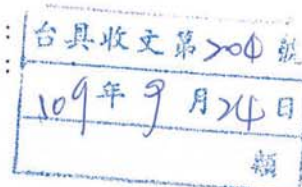 台具收文第204號
109年9月24日
類